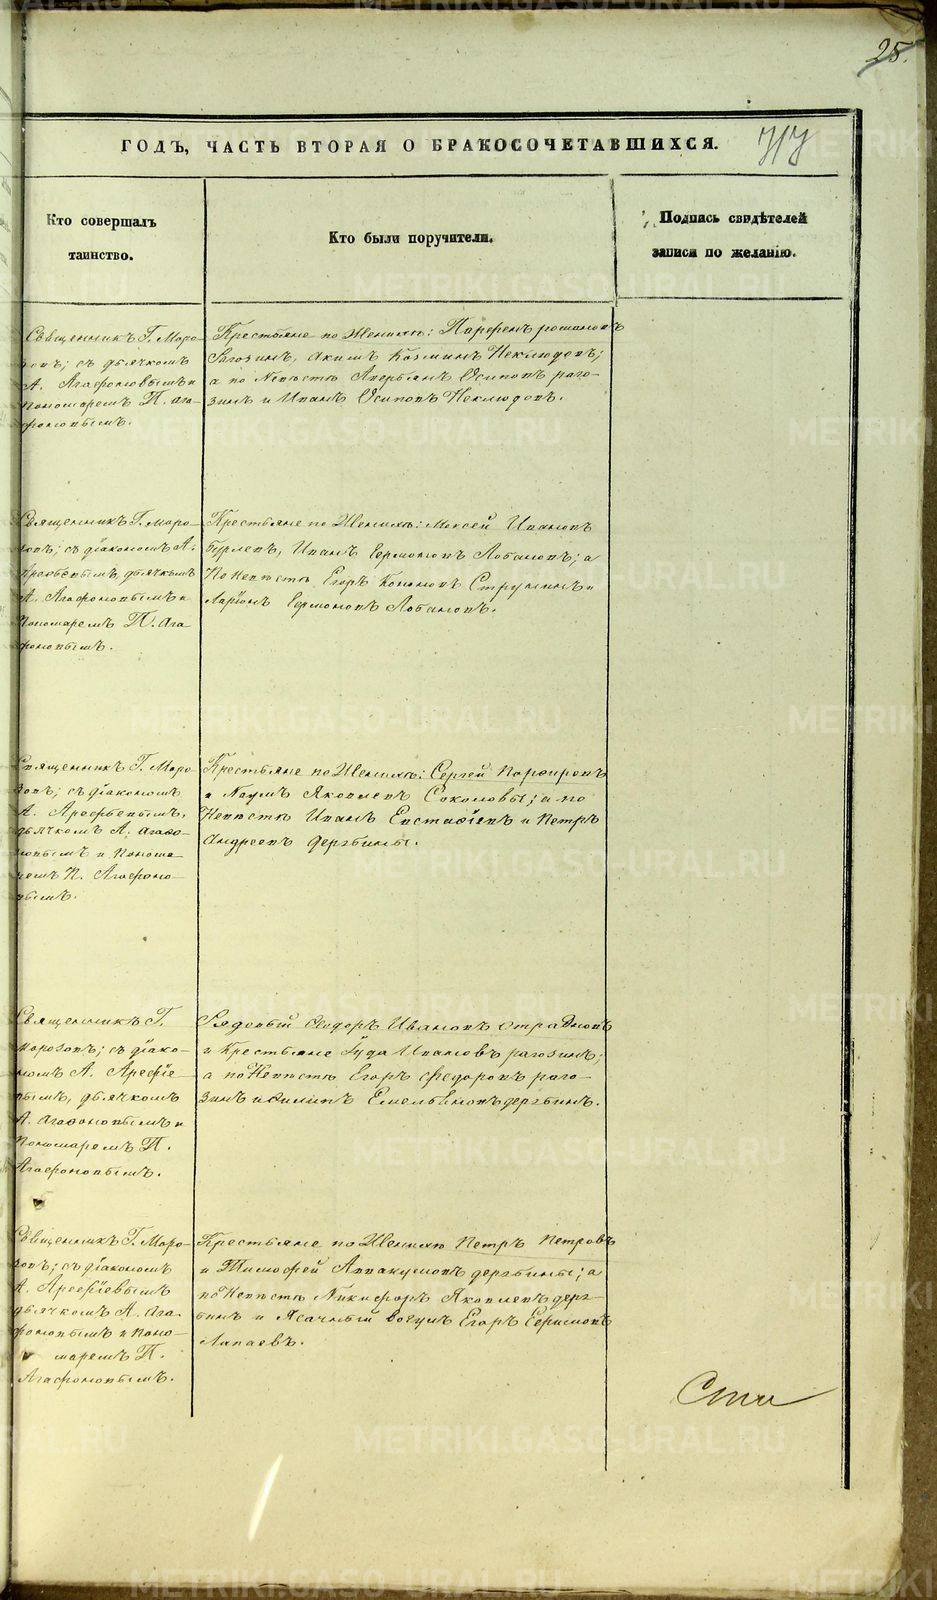 25.
ГОДЪ, ЧАСТЬ ВТОРАЯ О БРАКОСОЧЕТАВШИХСЯ.
Кто совершалъ
таинство.
Кто были поручители.
Подпись свидѣтелей
записи по желанію.
Священникъ Г. Моро-
зовъ; съ дьячкомъ
А. Агафоновымъ и
пономаремъ П. Ага-
фоновымъ.
Крестьяне по Женихѣ: Парфенъ романовъ
Рагозинъ, Акимъ Козминъ Неклюдовъ;
а по Невѣстѣ Аверьянъ Осиповъ раго-
зинъ и Иванъ Осиповъ Неклюдовъ.
Священникъ Г. Моро-
зовъ; съ діакономъ А.
Арефьевымъ, дьячкомъ
А. Агафоновымъ и
Пономаремъ П. Ага-
фоновымъ.
Крестьяне по Женихѣ: Моисей Ивановъ
Иванъ Ермоновъ Лобановъ; а
По Невѣстѣ Егоръ Кононовъ Струнинъ и
Ларіонъ Ермоновъ Лобановъ.
Священникъ Г. Моро-
зовъ; съ діакономъ
А. Арефьевымъ,
дьячкомъ А. Агафо-
новымъ и Понома-
ремъ П. Агафоно-
вымъ.
Крестьяне по Женихѣ: Сергей Порфировъ
и Наумъ Яковлевъ Соколовы; а по
Невѣстѣ Иванъ Евстафіевъ и Петръ
Андреевъ дерябины.
Священникъ Г.
Морозовъ; съ діако-
номъ А. Арефіе-
вымъ, дьячкомъ
А. Агафоновымъ и
Пономаремъ П.
Агафоновымъ.
Рядовый Ѳедоръ Ивановъ отрадновъ
и Крестьяне Іуда Ивановъ рагозинъ;
а по Невѣстѣ Егоръ Федоровъ раго-
зинъ и Филипъ Емельяновъ дерябинъ.
Священникъ Г. Моро-
зовъ; съ діакономъ
А. Арефіевымъ
дьячкомъ А. Ага-
фоновымъ и Поно-
маремъ П.
Агафоновымъ.
Крестьяне по Женихѣ Петръ Петровъ
и Тимофей Аввакумовъ дерябины; а
по Невѣстѣ Никифоръ Яковлевъ деря-
бинъ и Ясачный вогулъ Егоръ Ефимовъ
Лапаевъ.
METRIKI.GASO-URAL.RU